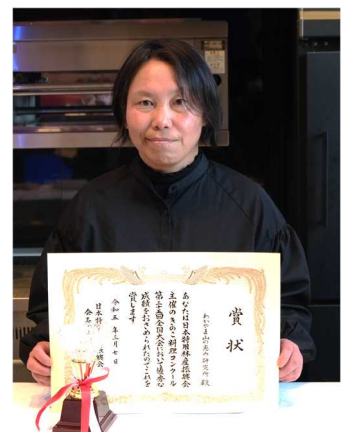 賞状
わかやま山の恵み研究所 殿
あなたは日本特用林産振興会
主催のきのこ料理コンクール
第三十五回全国大会において優秀な
成績をおさめられたのでこれを
賞します
令和五年三月七日
日本特 振興会